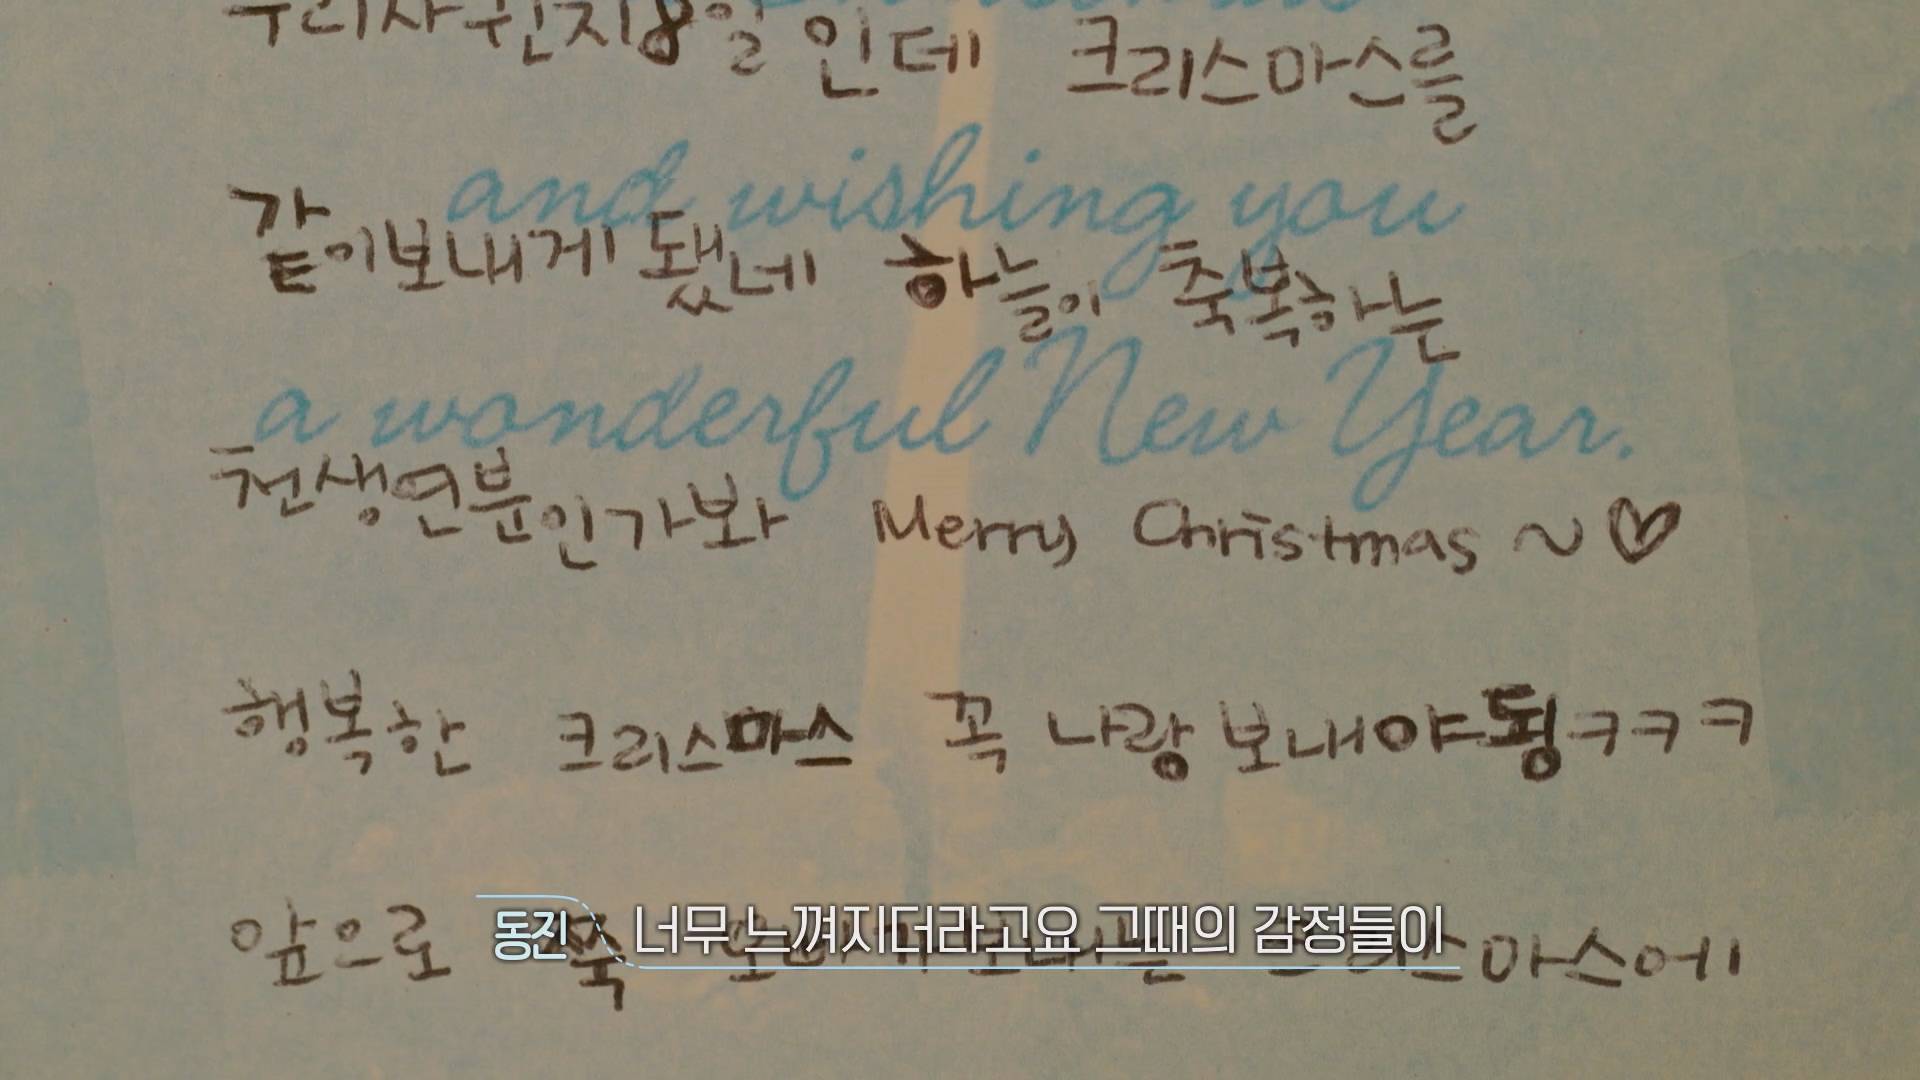 우리사귄지8일인데 크리스마스를
and wishing you
같이보내게 됐네 하늘이 축복하는
a wonderful New Year.
천생연분인가봐 Merry Christmas ~♡
행복한 크리스마스 꼭 나랑 보내야됭ㅋㅋㅋ
앞으로 쭉 크리스마스에
동진 너무 느껴지더라고요 그때의 감정들이